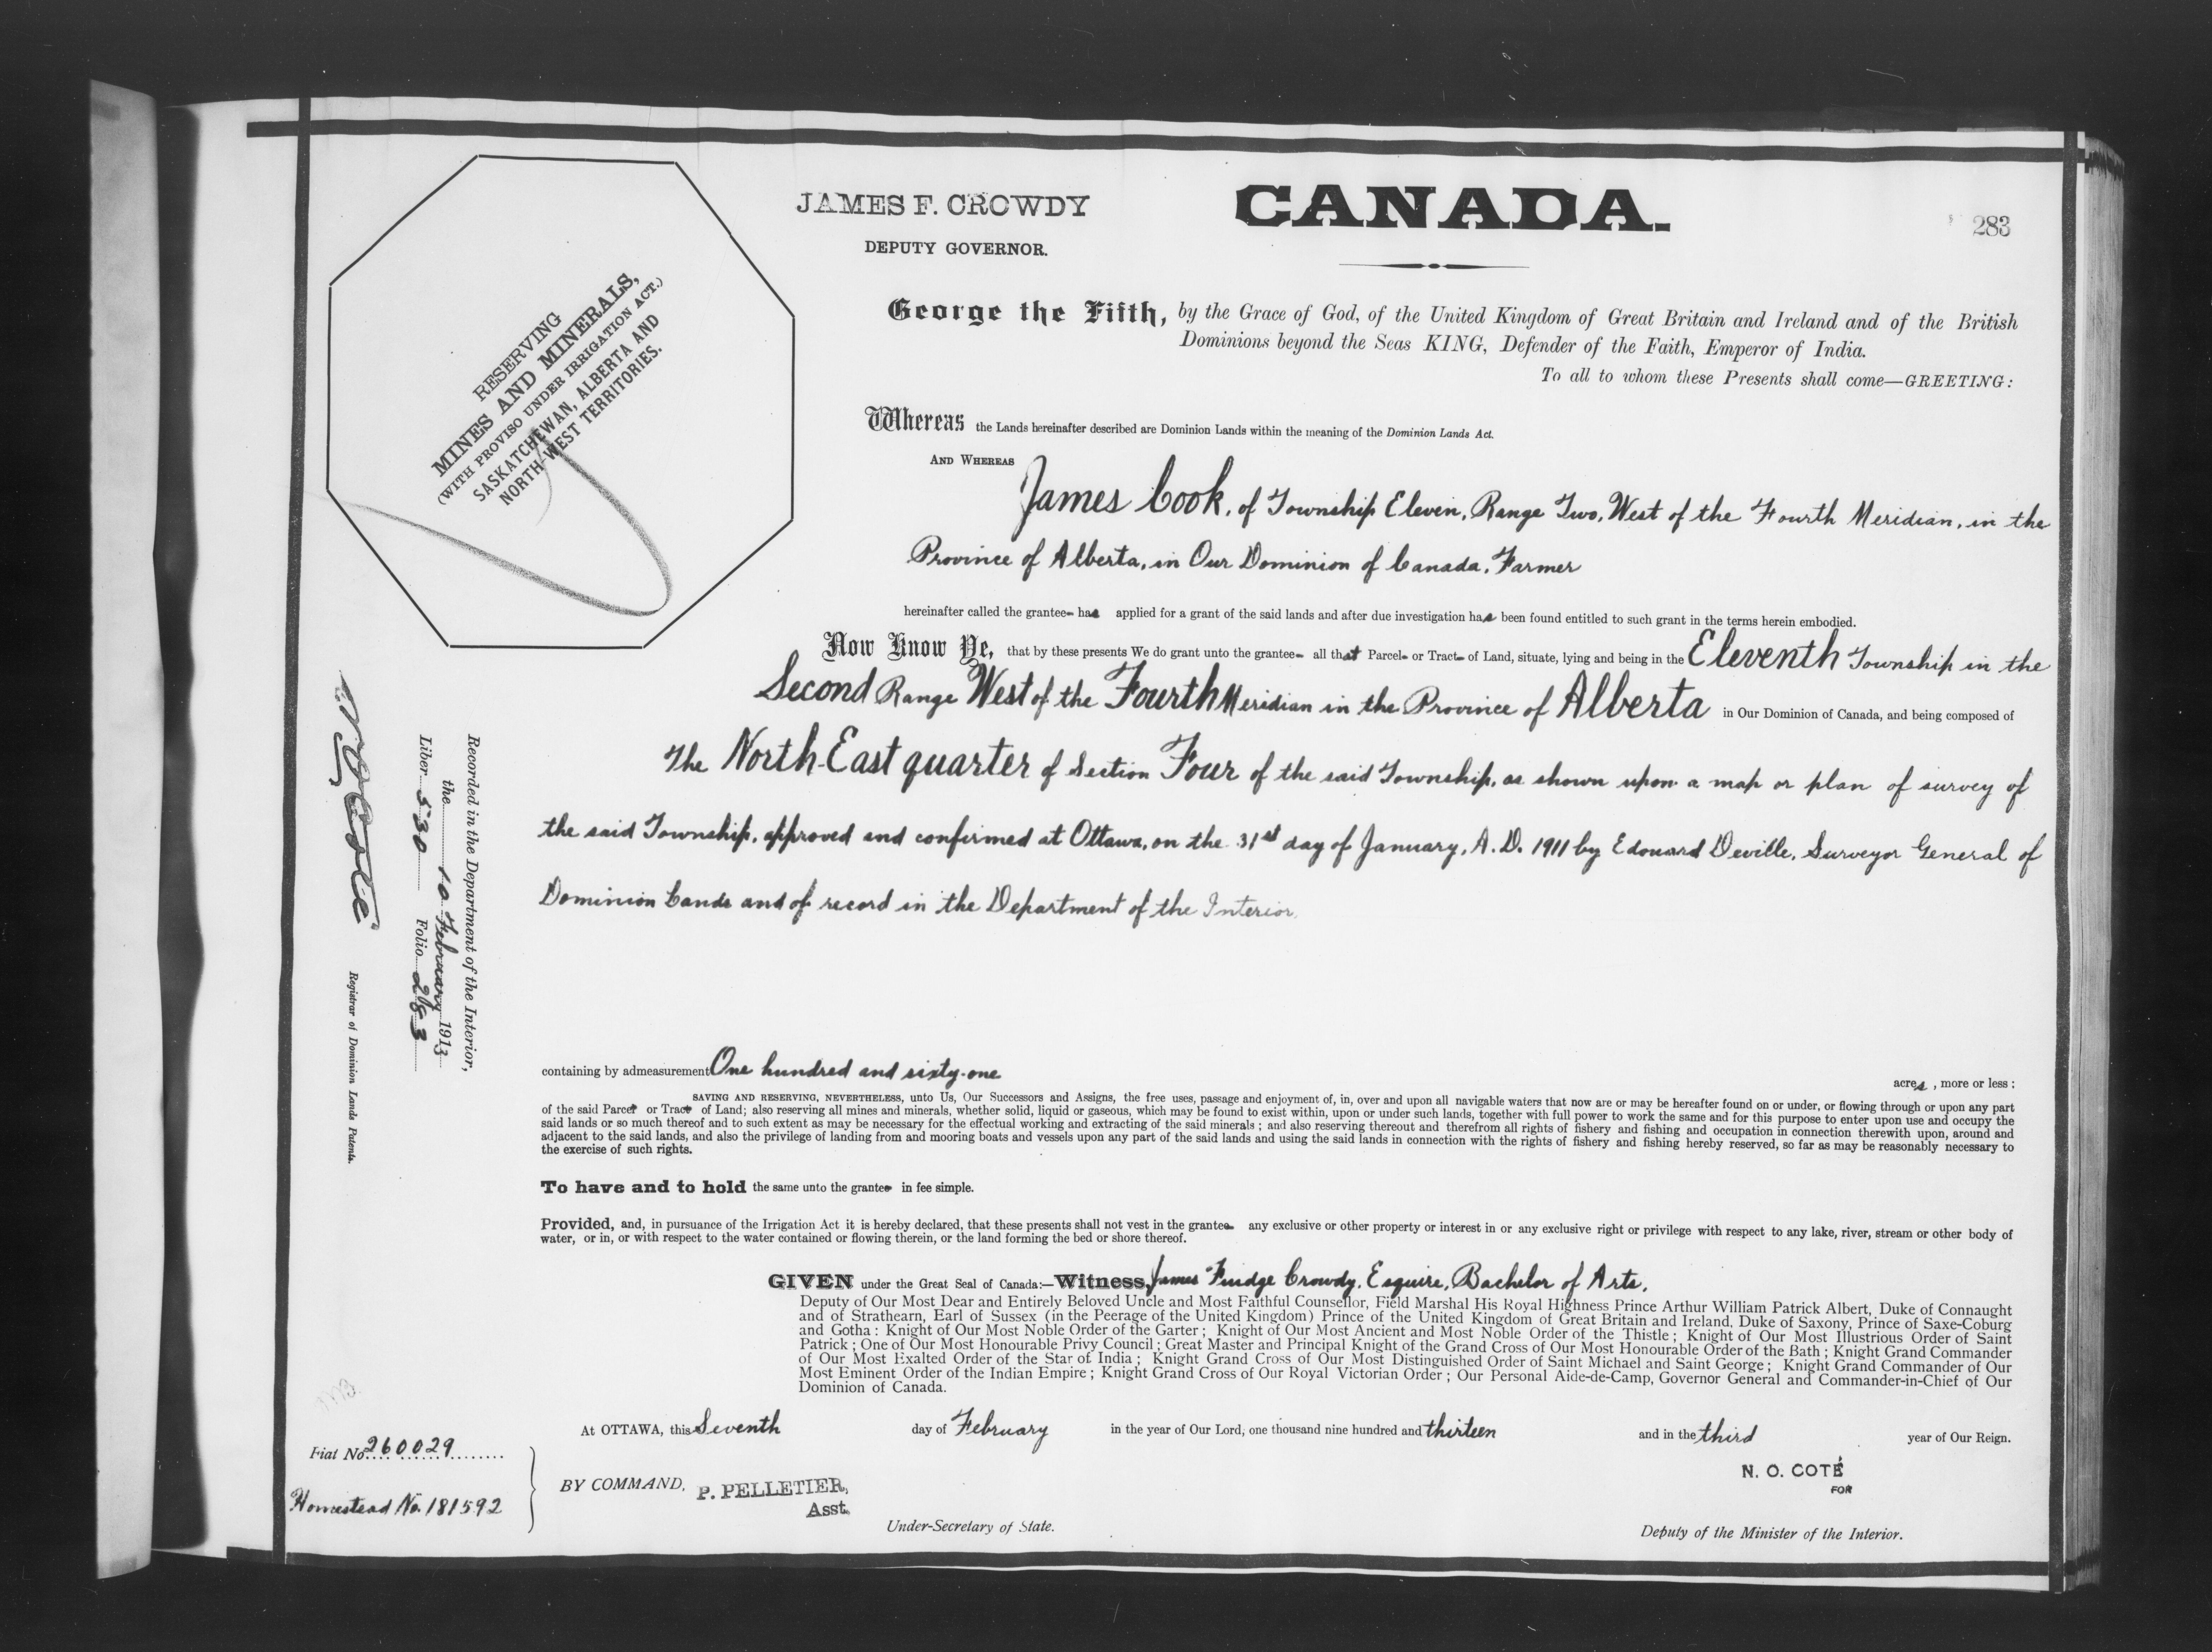 JAMES F. CROWDY
DEPUTY GOVERNOR.
CANADA.
283
RESERVING
MINES AND MINERALS,
(WITH PROVISO UNDER IRRIGATION ACT.)
SASKATCHEWAN, ALBERTA AND
NORTH-WEST TERRITORIES.
George the Fifth, by the Grace of God, of the United Kingdom of Great Britain and Ireland and of the British
Dominions beyond the Seas KING, Defender of the Faith, Emperor of India.
To all to whom these Presents shall come—GREETING:
Whereas the Lands hereinafter described are Dominion Lands within the meaning of the Dominion Lands Act.
AND WHEREAS
James Cook, of Township Eleven, Range Two, West of the Fourth Meridian, in the
Province of Alberta, in Our Dominion of Canada, Farmer
hereinafter called the grantee has applied for a grant of the said lands and after due investigation has been found entitled to such grant in the terms herein embodied.
Now Know Ye, that by these presents We do grant unto the grantee all that Parcel or Tract of Land, situate, lying and being in the Eleventh Township in the
Second Range West of the Fourth Meridian in the Province of Alberta in Our Dominion of Canada, and being composed of
The North-East quarter of Section Four of the said Township, as shown upon a map or plan of survey of
the said Township, approved and confirmed at Ottawa, on the 31st day of January, A.D. 1911 by Edouard Deville, Surveyor General of
Dominion Lands and of record in the Department of the Interior.
containing by admeasurement One hundred and sixty-one acres, more or less:
SAVING AND RESERVING, NEVERTHELESS, unto Us, Our Successors and Assigns, the free uses, passage and enjoyment of, in, over and upon all navigable waters that now are or may be hereafter found on or under, or flowing through or upon any part
of the said Parcel or Tract of Land; also reserving all mines and minerals, whether solid, liquid or gaseous, which may be found to exist within, upon or under such lands, together with full power to work the same and for this purpose to enter upon use and occupy the
said lands or so much thereof and to such extent as may be necessary for the effectual working and extracting of the said minerals; and also reserving thereout and therefrom all rights of fishery and fishing and occupation in connection therewith upon, around and
adjacent to the said lands, and also the privilege of landing from and mooring boats and vessels upon any part of the said lands and using the said lands in connection with the rights of fishery and fishing hereby reserved, so far as may be reasonably necessary to
the exercise of such rights.
To have and to hold the same unto the grantee in fee simple.
Provided, and, in pursuance of the Irrigation Act it is hereby declared, that these presents shall not vest in the grantee any exclusive or other property or interest in or any exclusive right or privilege with respect to any lake, river, stream or other body of
water, or in, or with respect to the water contained or flowing therein, or the land forming the bed or shore thereof.
GIVEN under the Great Seal of Canada:—Witness, James Fudge Crowdy, Esquire, Bachelor of Arts,
Deputy of Our Most Dear and Entirely Beloved Uncle and Most Faithful Counsellor, Field Marshal His Royal Highness Prince Arthur William Patrick Albert, Duke of Connaught
and of Strathearn, Earl of Sussex (in the Peerage of the United Kingdom) Prince of the United Kingdom of Great Britain and Ireland, Duke of Saxony, Prince of Saxe-Coburg
and Gotha: Knight of Our Most Noble Order of the Garter; Knight of Our Most Ancient and Most Noble Order of the Thistle; Knight of Our Most Illustrious Order of Saint
Patrick; One of Our Most Honourable Privy Council; Great Master and Principal Knight of the Grand Cross of Our Most Honourable Order of the Bath; Knight Grand Commander
of Our Most Exalted Order of the Star of India; Knight Grand Cross of Our Most Distinguished Order of Saint Michael and Saint George; Knight Grand Commander of Our
Most Eminent Order of the Indian Empire; Knight Grand Cross of Our Royal Victorian Order; Our Personal Aide-de-Camp, Governor General and Commander-in-Chief of Our
Dominion of Canada.
At OTTAWA, this Seventh day of February in the year of Our Lord, one thousand nine hundred and thirteen and in the third year of Our Reign.
BY COMMAND, P. PELLETIER,
Asst.
Under-Secretary of State.
N. O. COTÉ
FOR
Deputy of the Minister of the Interior.
Fiat No. 260029
Homestead No. 181592
Recorded in the Department of the Interior,
the 10 February 1913
Liber 530 Folio 283
N. O. Coté
Registrar of Dominion Lands Patents.